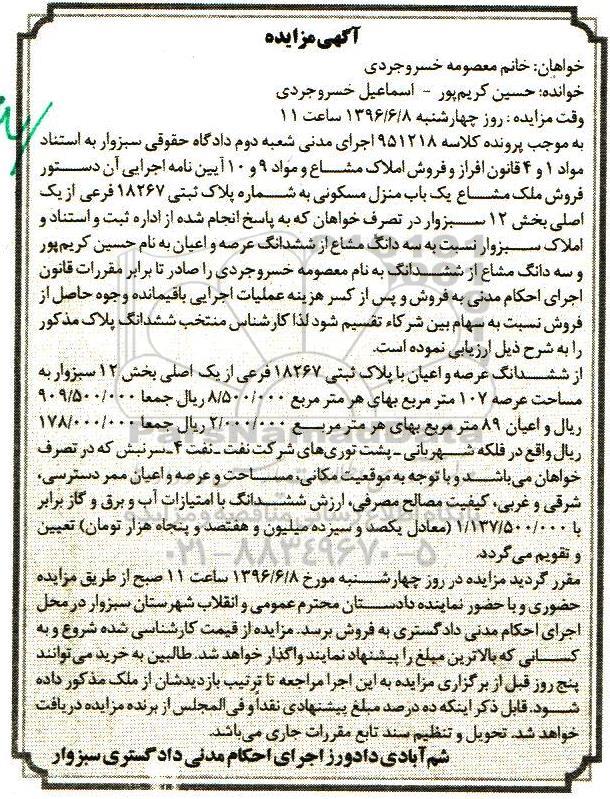 آگهی مزایده
خواهان: خانم معصومه خسروجردی
خوانده: حسین کریم‌پور - اسماعیل خسروجردی
وقت مزایده: روز چهارشنبه ۱۳۹۶/۶/۸ ساعت ۱۱
به موجب پرونده کلاسه ۹۵۱۲۱۸ اجرای مدنی شعبه دوم دادگاه حقوقی سبزوار به استناد
مواد ۱ و ۴ قانون افراز و فروش املاک مشاع و مواد ۹ و ۱۰ آیین نامه اجرایی آن دستور
فروش ملک مشاع یک باب منزل مسکونی به شماره پلاک ثبتی ۱۸۲۶۷ فرعی از یک
اصلی بخش ۱۲ سبزوار در تصرف خواهان که به پاسخ انجام شده از اداره ثبت و اسناد و
املاک سبزوار نسبت به سه دانگ مشاع از ششدانگ عرصه و اعیان به نام حسین کریم‌پور
و سه دانگ مشاع از ششدانگ به نام معصومه خسروجردی را صادر تا برابر مقررات قانون
اجرای احکام مدنی به فروش و پس از کسر هزینه عملیات اجرایی باقیمانده وجوه حاصل از
فروش نسبت به سهام بین شرکاء تقسیم شود لذا کارشناس منتخب ششدانگ پلاک مذکور
را به شرح ذیل ارزیابی نموده است.
از ششدانگ عرصه و اعیان با پلاک ثبتی ۱۸۲۶۷ فرعی از یک اصلی بخش ۱۲ سبزوار به
مساحت عرصه ۱۰۷ متر مربع بهای هر متر مربع ۸/۵۰۰/۰۰۰ ریال جمعا ۹۰۹/۵۰۰/۰۰۰
ریال و اعیان ۸۹ متر مربع بهای هر متر مربع ۲/۰۰۰/۰۰۰ ریال جمعا ۱۷۸/۰۰۰/۰۰۰
ریال واقع در فلکه شهربانی - پشت توری‌های شرکت نفت - نفت ۴ - سرنبش که در تصرف
خواهان می‌باشد و با توجه به موقعیت مکانی، مساحت و عرصه و اعیان ممر دسترسی،
شرقی و غربی، کیفیت مصالح مصرفی، ارزش ششدانگ با امتیازات آب و برق و گاز برابر
با ۱/۱۳۷/۵۰۰/۰۰۰ (معادل یکصد و سیزده میلیون و هفتصد و پنجاه هزار تومان) تعیین
و تقویم می‌گردد.
مقرر گردید مزایده در روز چهارشنبه مورخ ۱۳۹۶/۶/۸ ساعت ۱۱ صبح از طریق مزایده
حضوری و با حضور نماینده دادستان محترم عمومی و انقلاب شهرستان سبزوار در محل
اجرای احکام مدنی دادگستری به فروش برسد. مزایده از قیمت کارشناسی شده شروع و به
کسانی که بالاترین مبلغ را پیشنهاد نمایند واگذار خواهد شد. طالبین به خرید می‌توانند
پنج روز قبل از برگزاری مزایده به این اجرا مراجعه تا ترتیب بازدیدشان از ملک مذکور داده
شود. قابل ذکر اینکه ده درصد مبلغ پیشنهادی نقداً و فی‌المجلس از برنده مزایده دریافت
خواهد شد. تحویل و تنظیم سند تابع مقررات جاری می‌باشد.
شم‌آبادی دادورز اجرای احکام مدنی دادگستری سبزوار
ParsNamadData
پایگاه اطلاع رسانی مناقصه و مزایده
۰۲۱-۸۸۳۴۹۶۷۰-۵